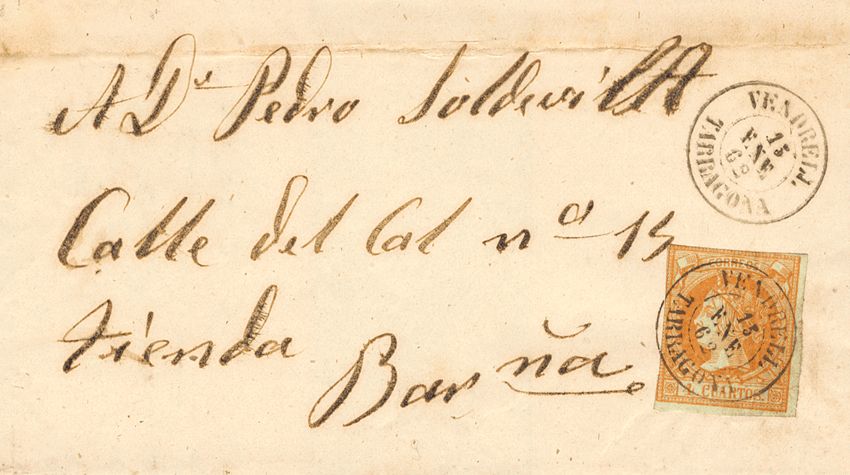 A Dn Pedro Soldevilla
Calle del Cal nº 15
tienda
Barna
VENDRELL.
15
ENE
62
TARRAGONA
CORREOS
VENDRELL.
15
ENE
62
TARRAGONA
4 CUARTOS.